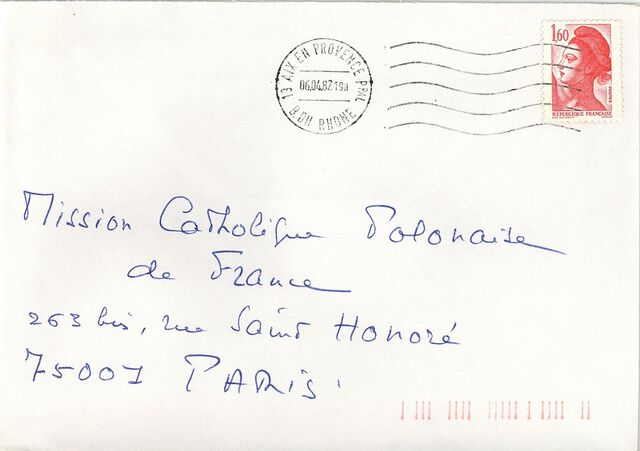 13 AIX EN PROVENCE PPAL
06.04.82 19H
B. DU RHONE
1,60
REPUBLIQUE FRANÇAISE
Mission Catholique Polonaise
de France
263 bis, rue Saint Honoré
75001 PARIS